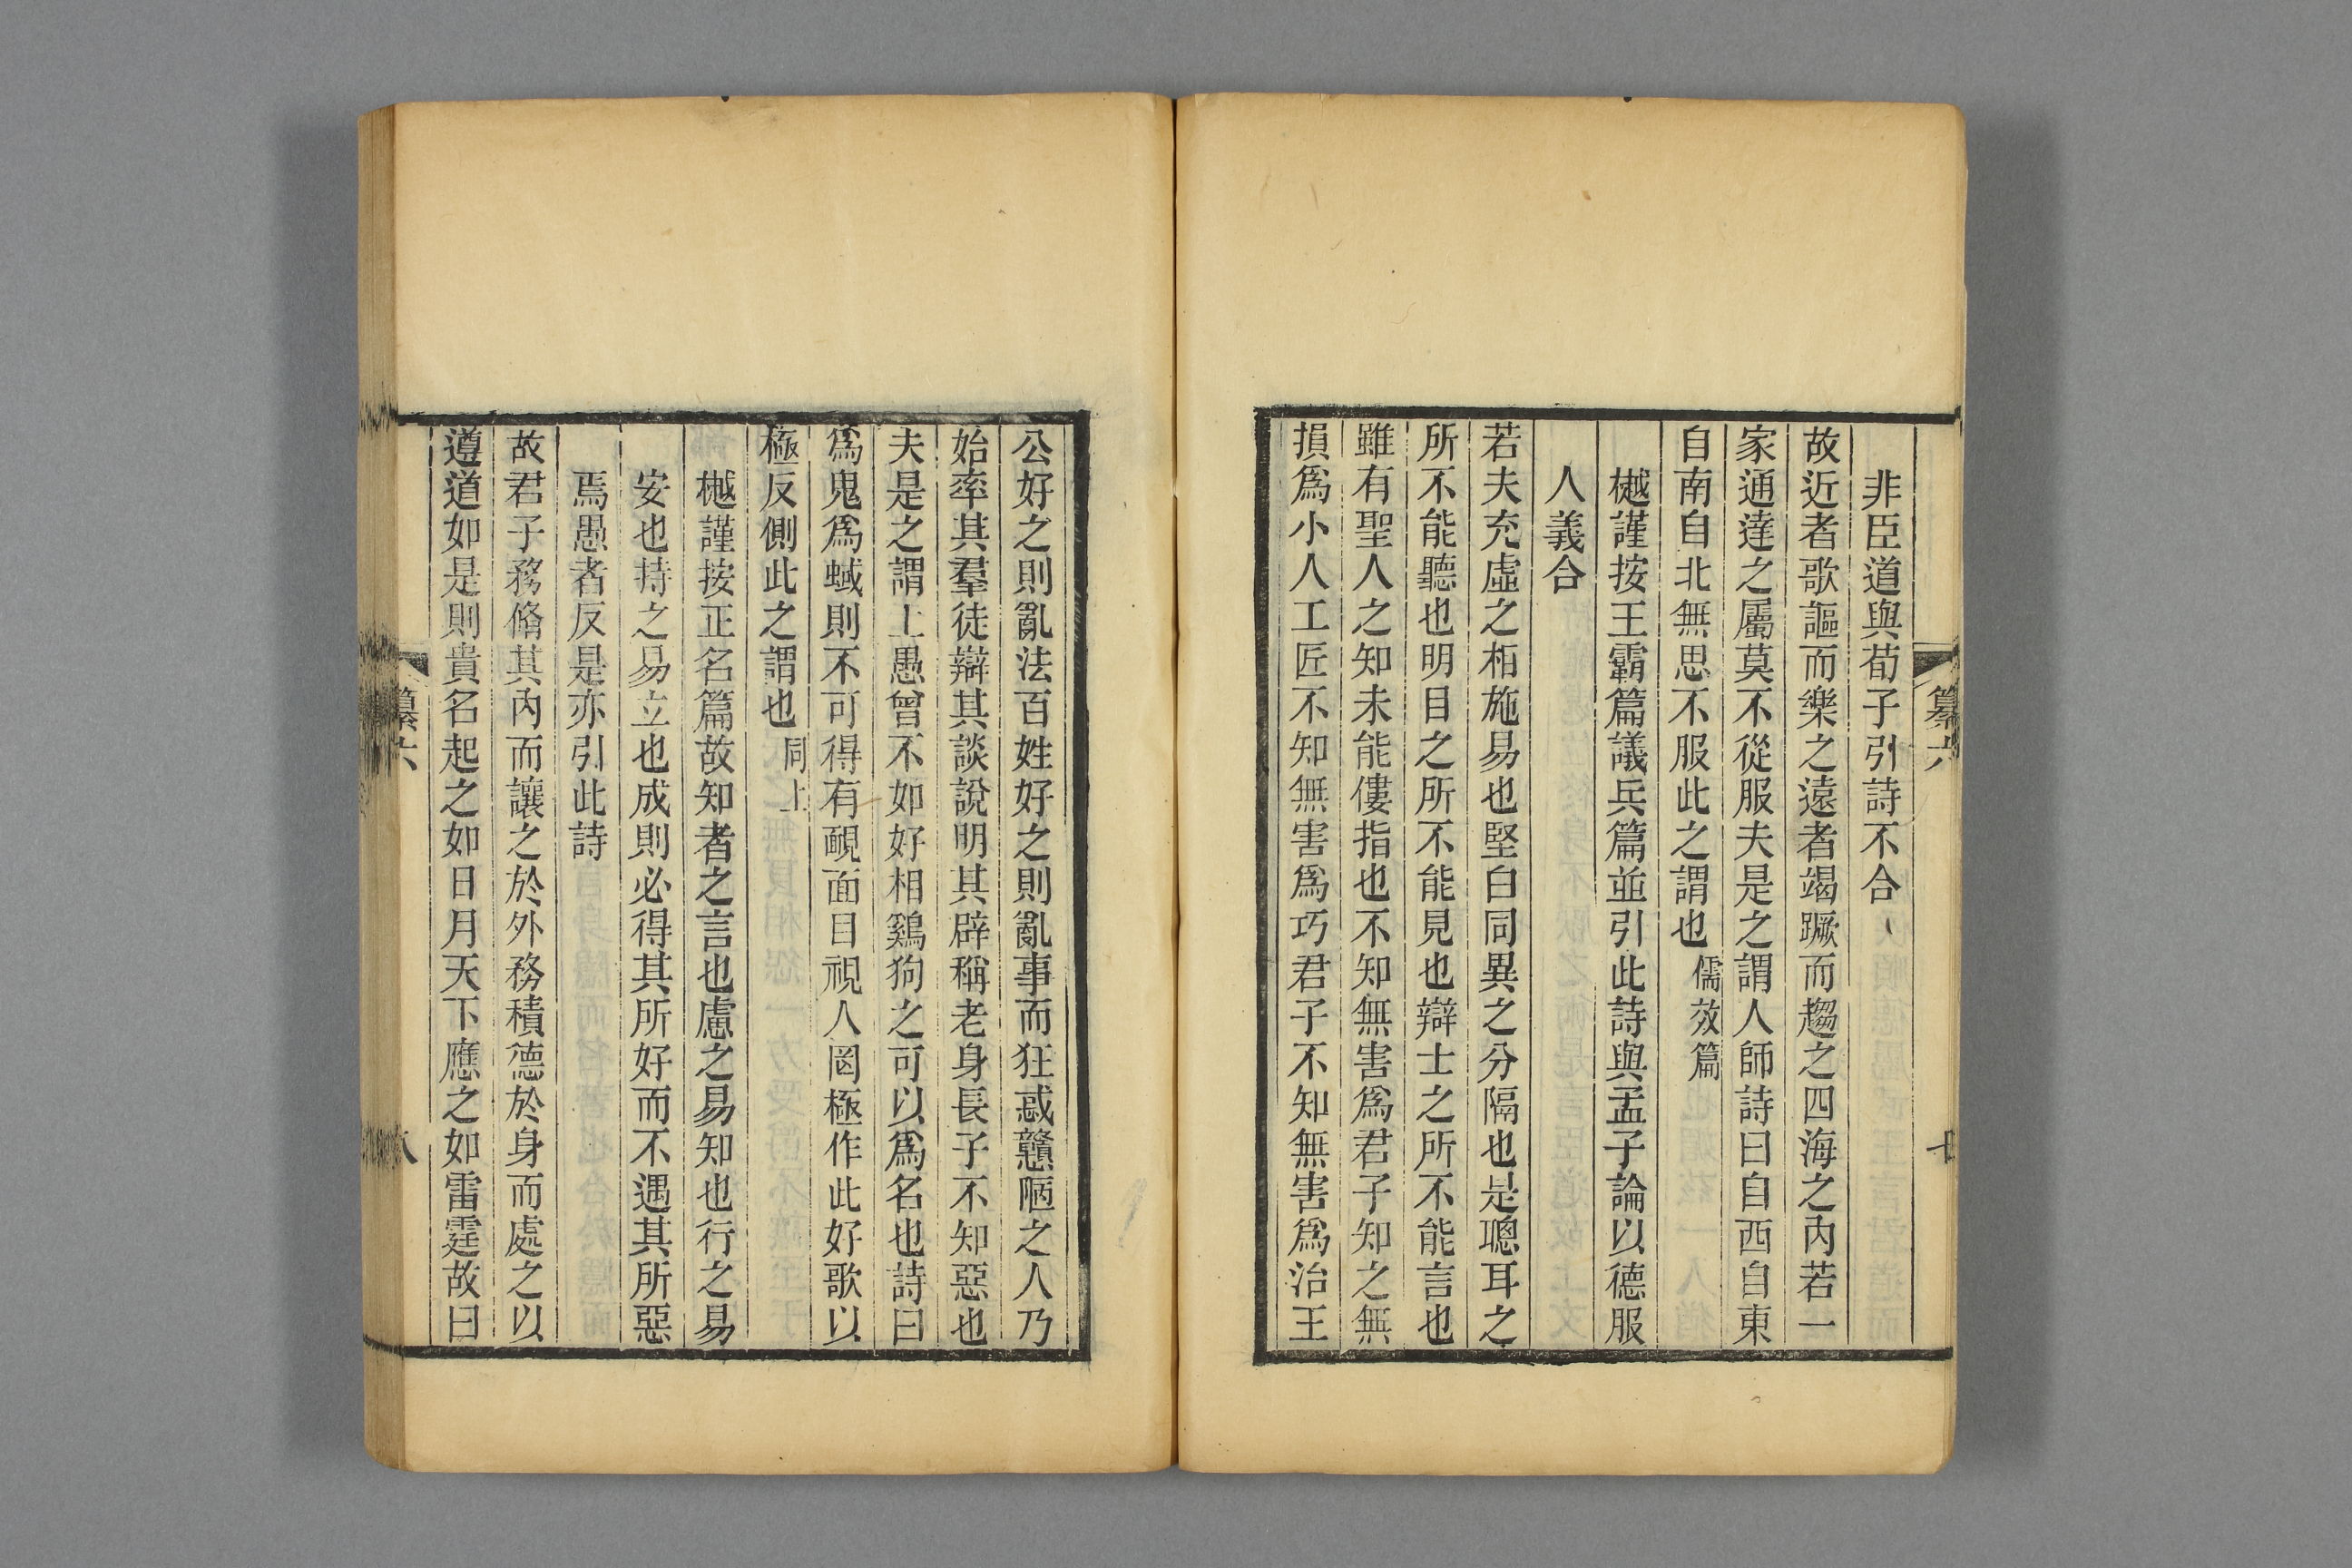 纂六
七
非臣道與荀子引詩不合
故近者歌謳而樂之遠者竭蹶而趨之四海之內若一
家通達之屬莫不從服夫是之謂人師詩曰自西自東
自南自北無思不服此之謂也儒效篇
樾謹按王霸篇議兵篇並引此詩與孟子論以德服
人義合
若夫充虛之相施易也堅白同異之分隔也是聰耳之
所不能聽也明目之所不能見也辯士之所不能言也
雖有聖人之知未能僂指也不知無害爲君子知之無
損爲小人工匠不知無害爲巧君子不知無害爲治王
公好之則亂法百姓好之則亂事而狂惑戇陋之人乃
始率其羣徒辯其談說明其辟稱老身長子不知惡也
夫是之謂上愚曾不如好相鷄狗之可以爲名也詩曰
爲鬼爲蜮則不可得有靦面目視人罔極作此好歌以
極反側此之謂也同上
樾謹按正名篇故知者之言也慮之易知也行之易
安也持之易立也成則必得其所好而不遇其所惡
焉愚者反是亦引此詩
故君子務脩其內而讓之於外務積德於身而處之以
遵道如是則貴名起之如日月天下應之如雷霆故曰
纂六
八